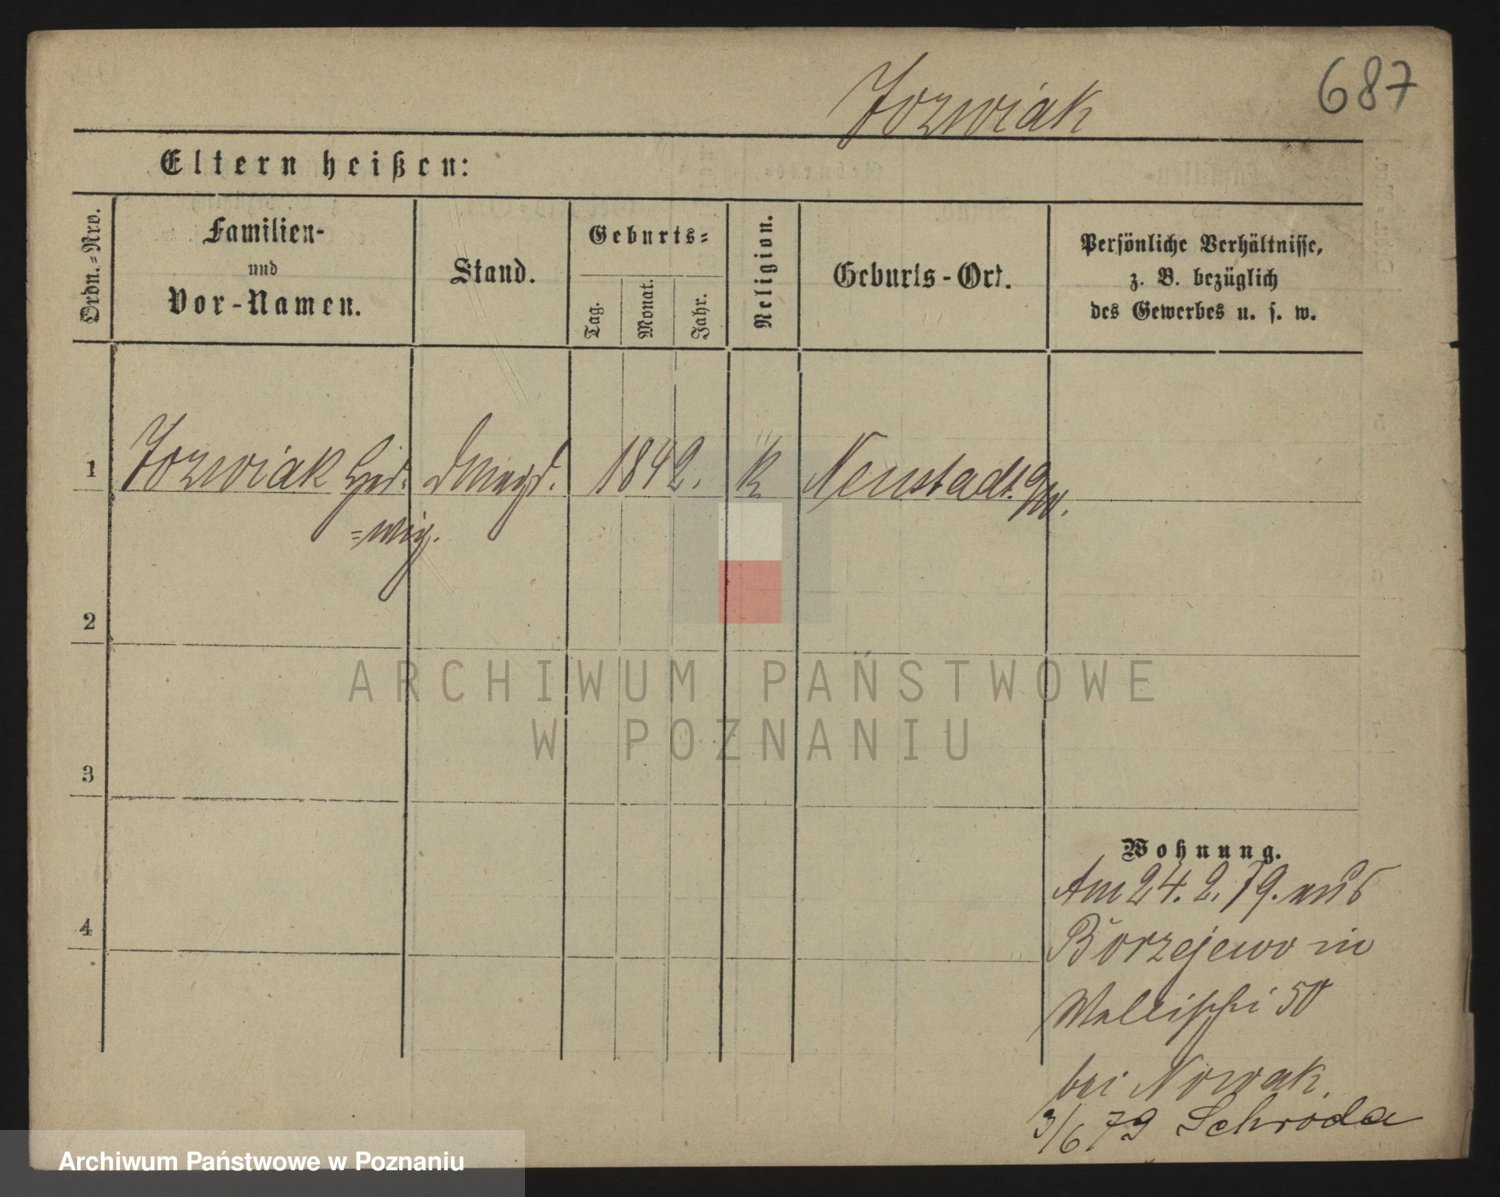 687
Jozwiak
Eltern heißen:
Ordn.-Nro.
Familien-
und
Vor-Namen.
Stand.
Geburts-
Tag.
Monat.
Jahr.
Religion.
Geburts-Ort.
Persönliche Verhältnisse,
z. B. bezüglich
des Gewerbes u. s. w.
1 Jozwiak Hed- Dmagd. 1842. K Neustadt
=wig.
2
3
4
Wohnung.
Am 24. 2. 79. aus
Borzejewo in
Wallischei 50
bei Nowak.
3/6 79 Schroda
ARCHIWUM PAŃSTWOWE
W POZNANIU
Archiwum Państwowe w Poznaniu